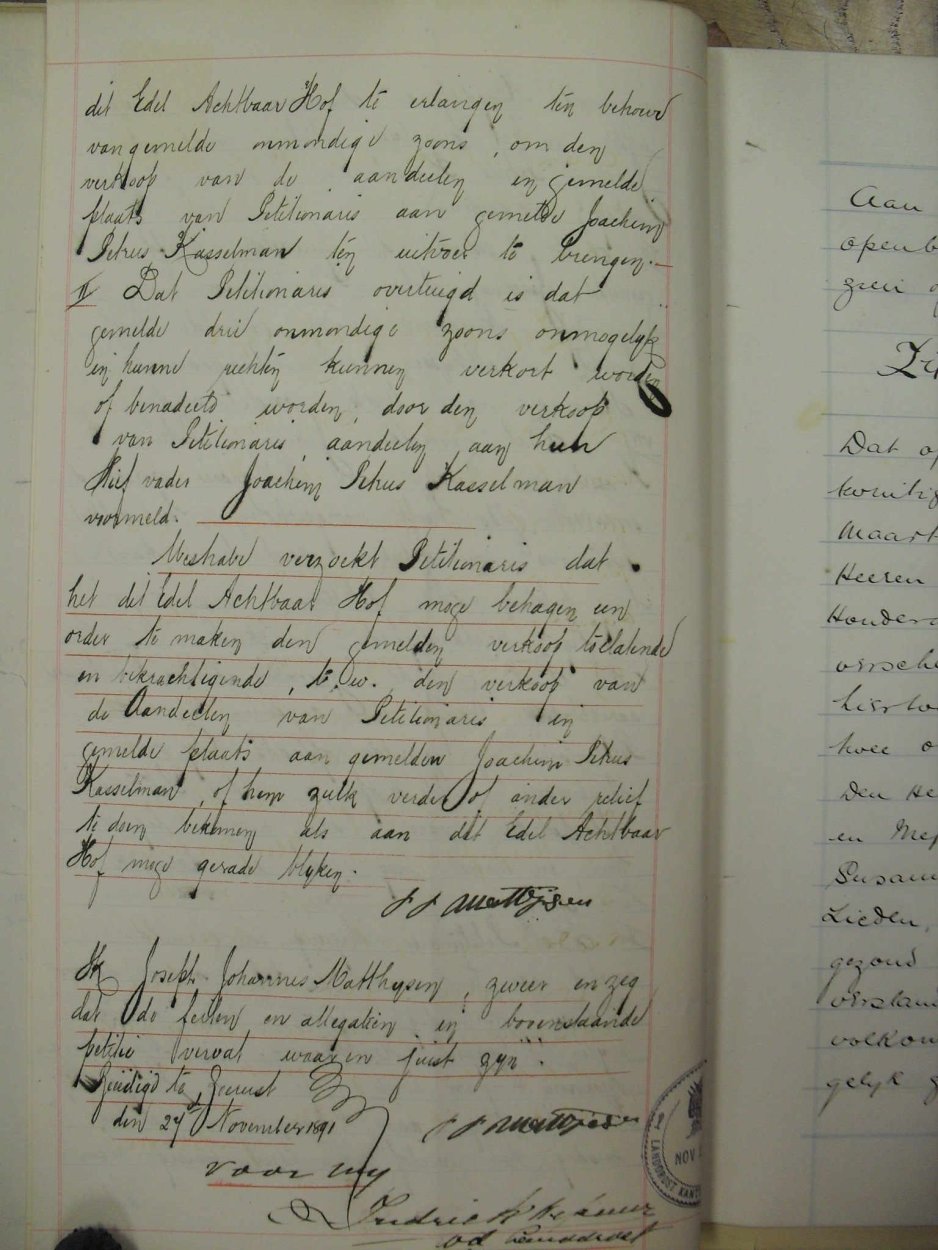 dit Edel Achtbaar Hof te erlangen ten behoeve
van gemelde onmondige zoons, om den
verkoop van de aandeelen in gemelde
plaats van Petitionaris aan gemelde Joachim
Petrus Kasselman ten uitvoer te brengen.
II Dat Petitionaris overtuigd is dat
gemelde drie onmondige zoons onmogelyk
in hunne rechten kunnen verkort worden
of benadeeld worden, door den verkoop
van Petitionaris aandeelen aan hun
Stief vader Joachim Petrus Kasselman
voormeld.
Weshalve verzoekt Petitionaris dat
het dit Edel Achtbaar Hof moge behagen een
order te maken den gemelden verkoop toelatende
en bekrachtigende, t.w. den verkoop van
de Aandeelen van Petitionaris in
gemelde plaats aan gemelden Joachim Petrus
Kasselman, of hem zulk verder of ander relief
te doen bekomen als aan dit Edel Achtbaar
Hof moge gerade blyken.
J J Matthysen
Ik Joseph Johannes Matthysen, zweer en zeg
dat de feiten en allegatien in bovenstaande
petitie vervat waar en juist zyn.
Beëdigd te Zeerust
den 27st November 1891
J J Matthysen
voor my
LANDDROST KANT
NOV
Aan
openb
Dat op
Maart
Heeren
Honderd
hierto
twee
Den He
en Mej
Susann
Lieden,
gezond
verstan
volkom
gelyk